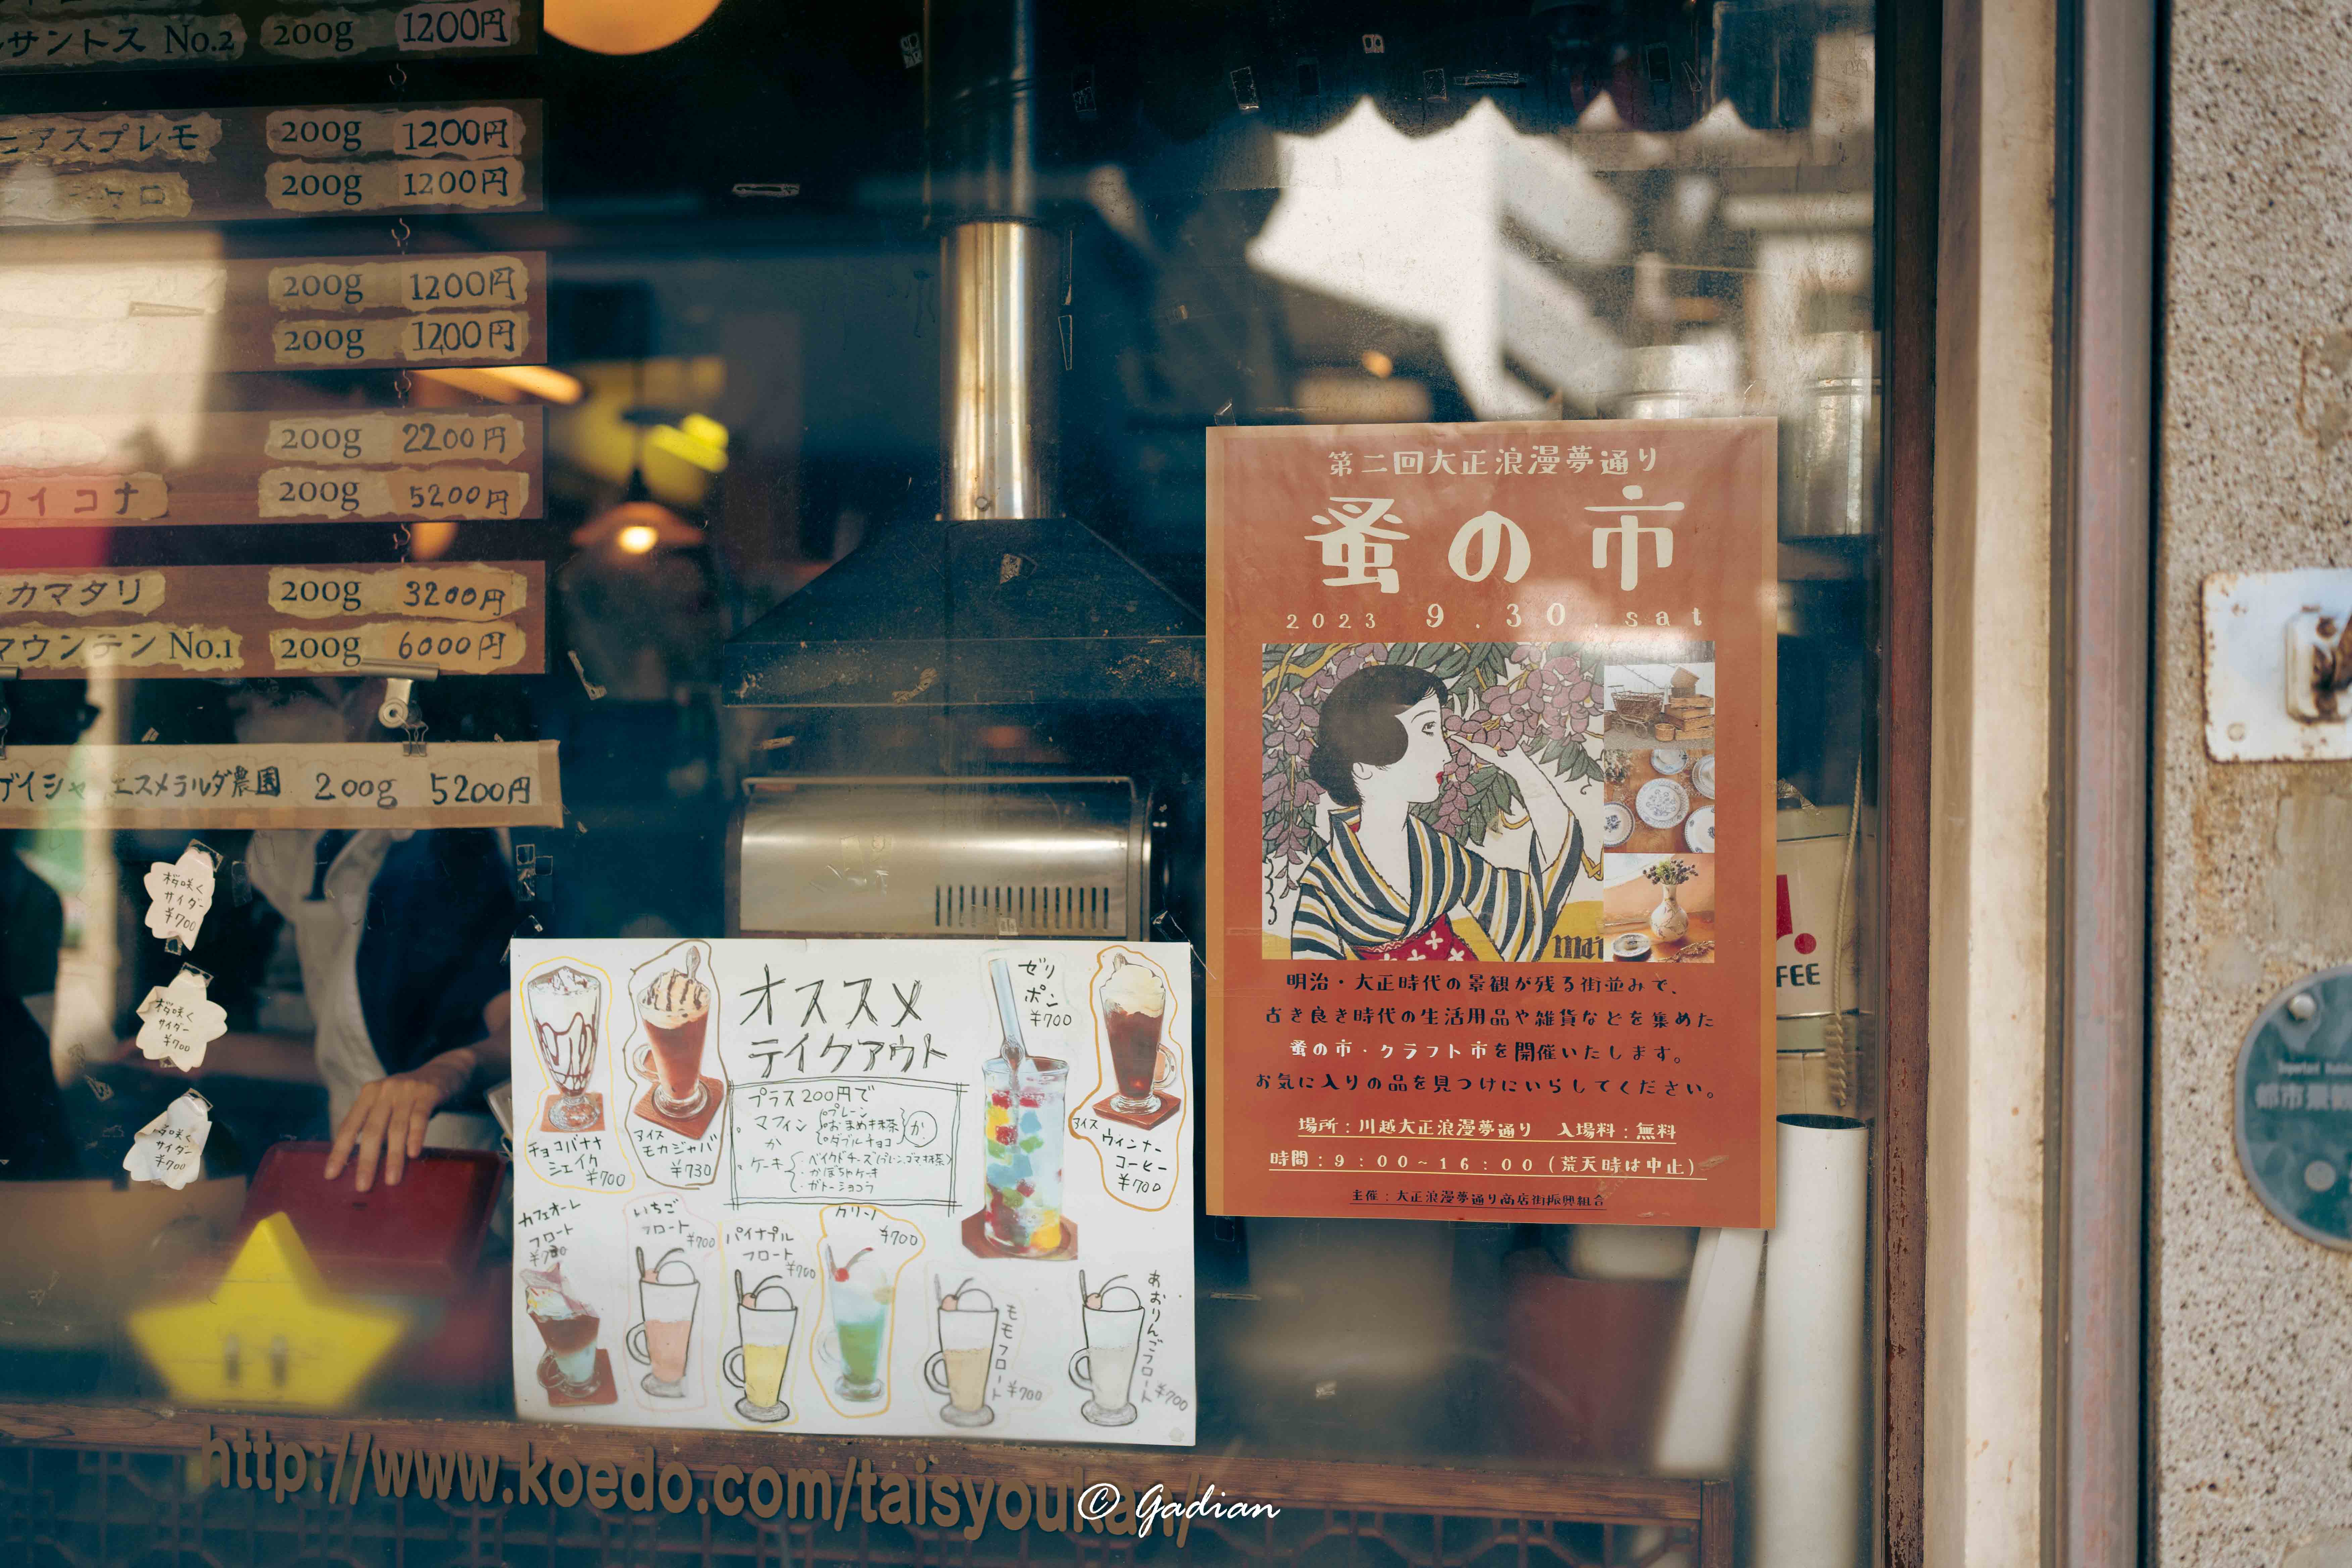 サントス No.2 200g 1200円
アスプレモ 200g 1200円
ャロ 200g 1200円
200g 1200円
200g 1200円
200g 2200円
ワイコナ 200g 5200円
カマタリ 200g 3200円
マウンテン No.1 200g 6000円
ゲイシャ エスメラルダ農園 200g 5200円
桜咲く
サイダー
¥700
桜咲く
サイダー
¥700
桜咲く
サイダー
¥700
オススメ
テイクアウト
プラス200円で
マフィン
プレーン
おまめ抹茶
ダブルチョコ
か
か
ケーキ
ベイクドチーズ(プレン、ゴマ、抹茶)
かぼちゃケーキ
ガトーショコラ
チョコバナナ
シェイク
¥700
アイス
モカジャバ
¥730
ゼリ
ポン
¥700
アイス
ウィンナー
コーヒー
¥700
カフェオーレ
フロート
いちご
フロート
¥700
パイナプル
フロート
¥700
クリーム
¥700
モモフロート ¥700
あおりんごフロート ¥700
http://www.koedo.com/taisyoukan/
第二回大正浪漫夢通り
蚤の市
2023 9.30.sat
明治・大正時代の景観が残る街並みで、
古き良き時代の生活用品や雑貨などを集めた
蚤の市・クラフト市を開催いたします。
お気に入りの品を見つけにいらしてください。
場所：川越大正浪漫夢通り 入場料：無料
時間：9：00~16：00（荒天時は中止）
主催：大正浪漫夢通り商店街振興組合
FEE
© Gadian